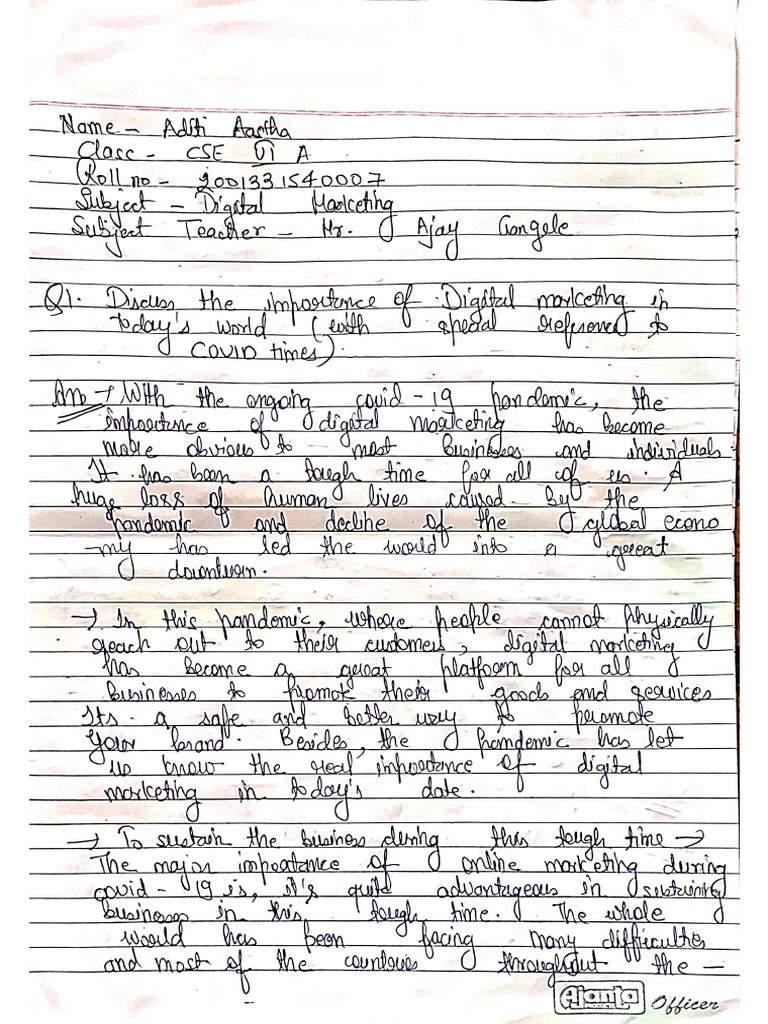 Name - Aditi Aastha
Class - CSE VI A
Roll no - 2001331540007
Subject - Digital Marketing
Subject Teacher - Mr. Ajay Gangele
Q1. Discuss the importance of Digital marketing in
today's world (with special reference to
COVID times).
Ans → With the ongoing covid-19 pandemic, the
importance of digital marketing has become
more obvious to most businesses and individuals
It has been a tough time for all of us. A
huge loss of human lives caused by the
pandemic and decline of the global econo
-my has led the world into a great
downturn.
→ In this pandemic, where people cannot physically
reach out to their customers, digital marketing
has become a great platform for all
businesses to promote their goods and services
Its a safe and better way to promote
your brand. Besides, the pandemic has let
us know the real importance of digital
marketing in today's date.
→ To sustain the business during this tough time →
The major importance of online marketing during
covid-19 is, it's quite advantageous in sustaining
businesses in this tough time. The whole
world has been facing many difficulties
and most of the countries throughout the -
Ajanta Officer